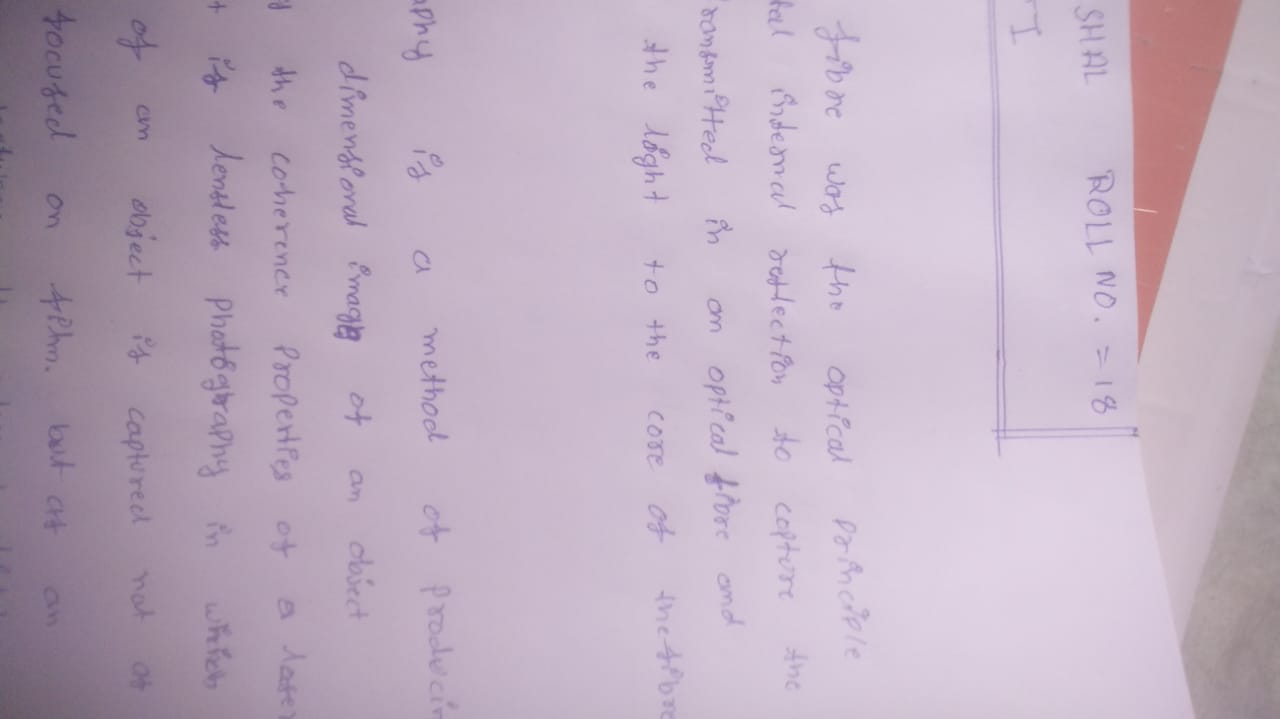 SHAL ROLL NO. = 18
I
fibre was the optical principle
tal internal reflection to capture the
ransmitted in an optical fibre and
the light to the core of the fibre
aphy is a method of producin
dimensional image of an object
the coherence properties of a laser
t is lensless photography in which
of an object is captured not as
focused on film. but as an